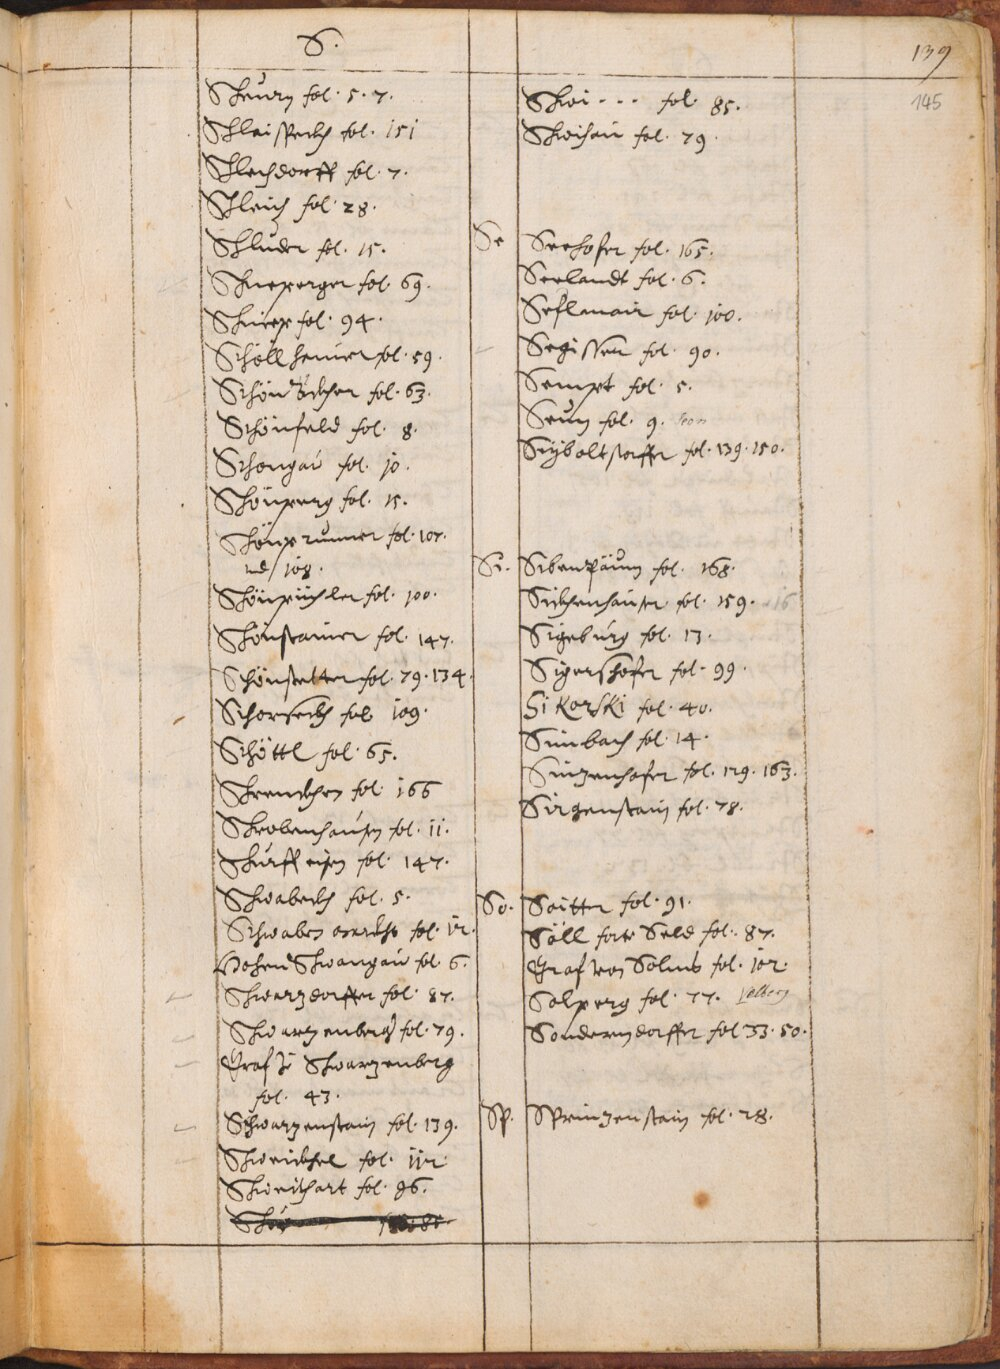 S.
139
145
Scheurn fol. 5. 7.
Schleispeckh fol. 151
Schlechdorff fol. 7.
Schleich fol. 28.
Schluder fol. 15.
Schneperger fol. 69.
Schneep fol. 94.
Schöllheimer fol. 59.
fol. 63.
Schönfeld fol. 8.
Schongau fol. 10.
Schönperg fol. 15.
Schönprunner fol. 107.
et/ 108.
Schönpüchler fol. 100.
Schönstainer fol. 147.
Schönstetter fol. 79. 134.
Schorseckh fol. 109.
Schöttl fol. 65.
Schrenckhen fol. 166
Schrobenhausen fol. 11.
Schurffeisen fol. 147.
Schwabeckh fol. 5.
Schwaben fol. 12.
HohenSchwangau fol. 6.
Schwarzdorffer fol. 87.
Schwarzenberg fol. 79.
Graf zu Schwarzenberg
fol. 43.
Schwarzenstain fol. 139.
Schweickher fol. 112
Schweithart fol. 96.
Schwi... fol. 85.
Schwichau fol. 79.
Se
Seehofer fol. 165.
Seelandt fol. 6.
Seslmair fol. 100.
Segisser fol. 90.
Sempt fol. 5.
Seun fol. 9.
Seyboltstorffer fol. 139. 150.
Si.
Sibenpäum fol. 168.
Sickhenhauser fol. 159.
Sigeburg fol. 13.
Sigershofer fol. 99.
Sikorski fol. 40.
Simbach fol. 14.
Sinzenhofer fol. 129. 163.
Sirgenstain fol. 78.
So.
Soitter fol. 91.
Söll forte Seld fol. 87.
Graf von Solms fol. 102.
Solperg fol. 77.
Sonderndorffer fol 33. 50.
Sp.
Sprinzenstain fol. 28.